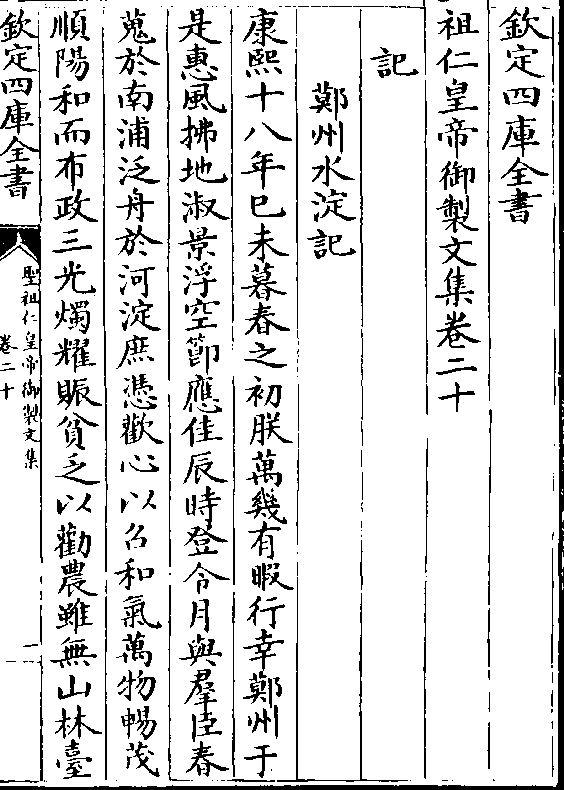 欽定四庫全書
祖仁皇帝御製文集卷二十
記
鄭州水淀記
康熙十八年巳未暮春之初朕萬幾有暇行幸鄭州于
是惠風拂地淑景浮空節應佳辰時登令月與羣臣春
蒐於南浦泛舟於河淀庶慿歡心以召和氣萬物暢茂
順陽和而布政三光燭耀賑貧乏以勸農雖無山林臺
欽定四庫全書
聖祖仁皇帝御製文集
卷二十
一